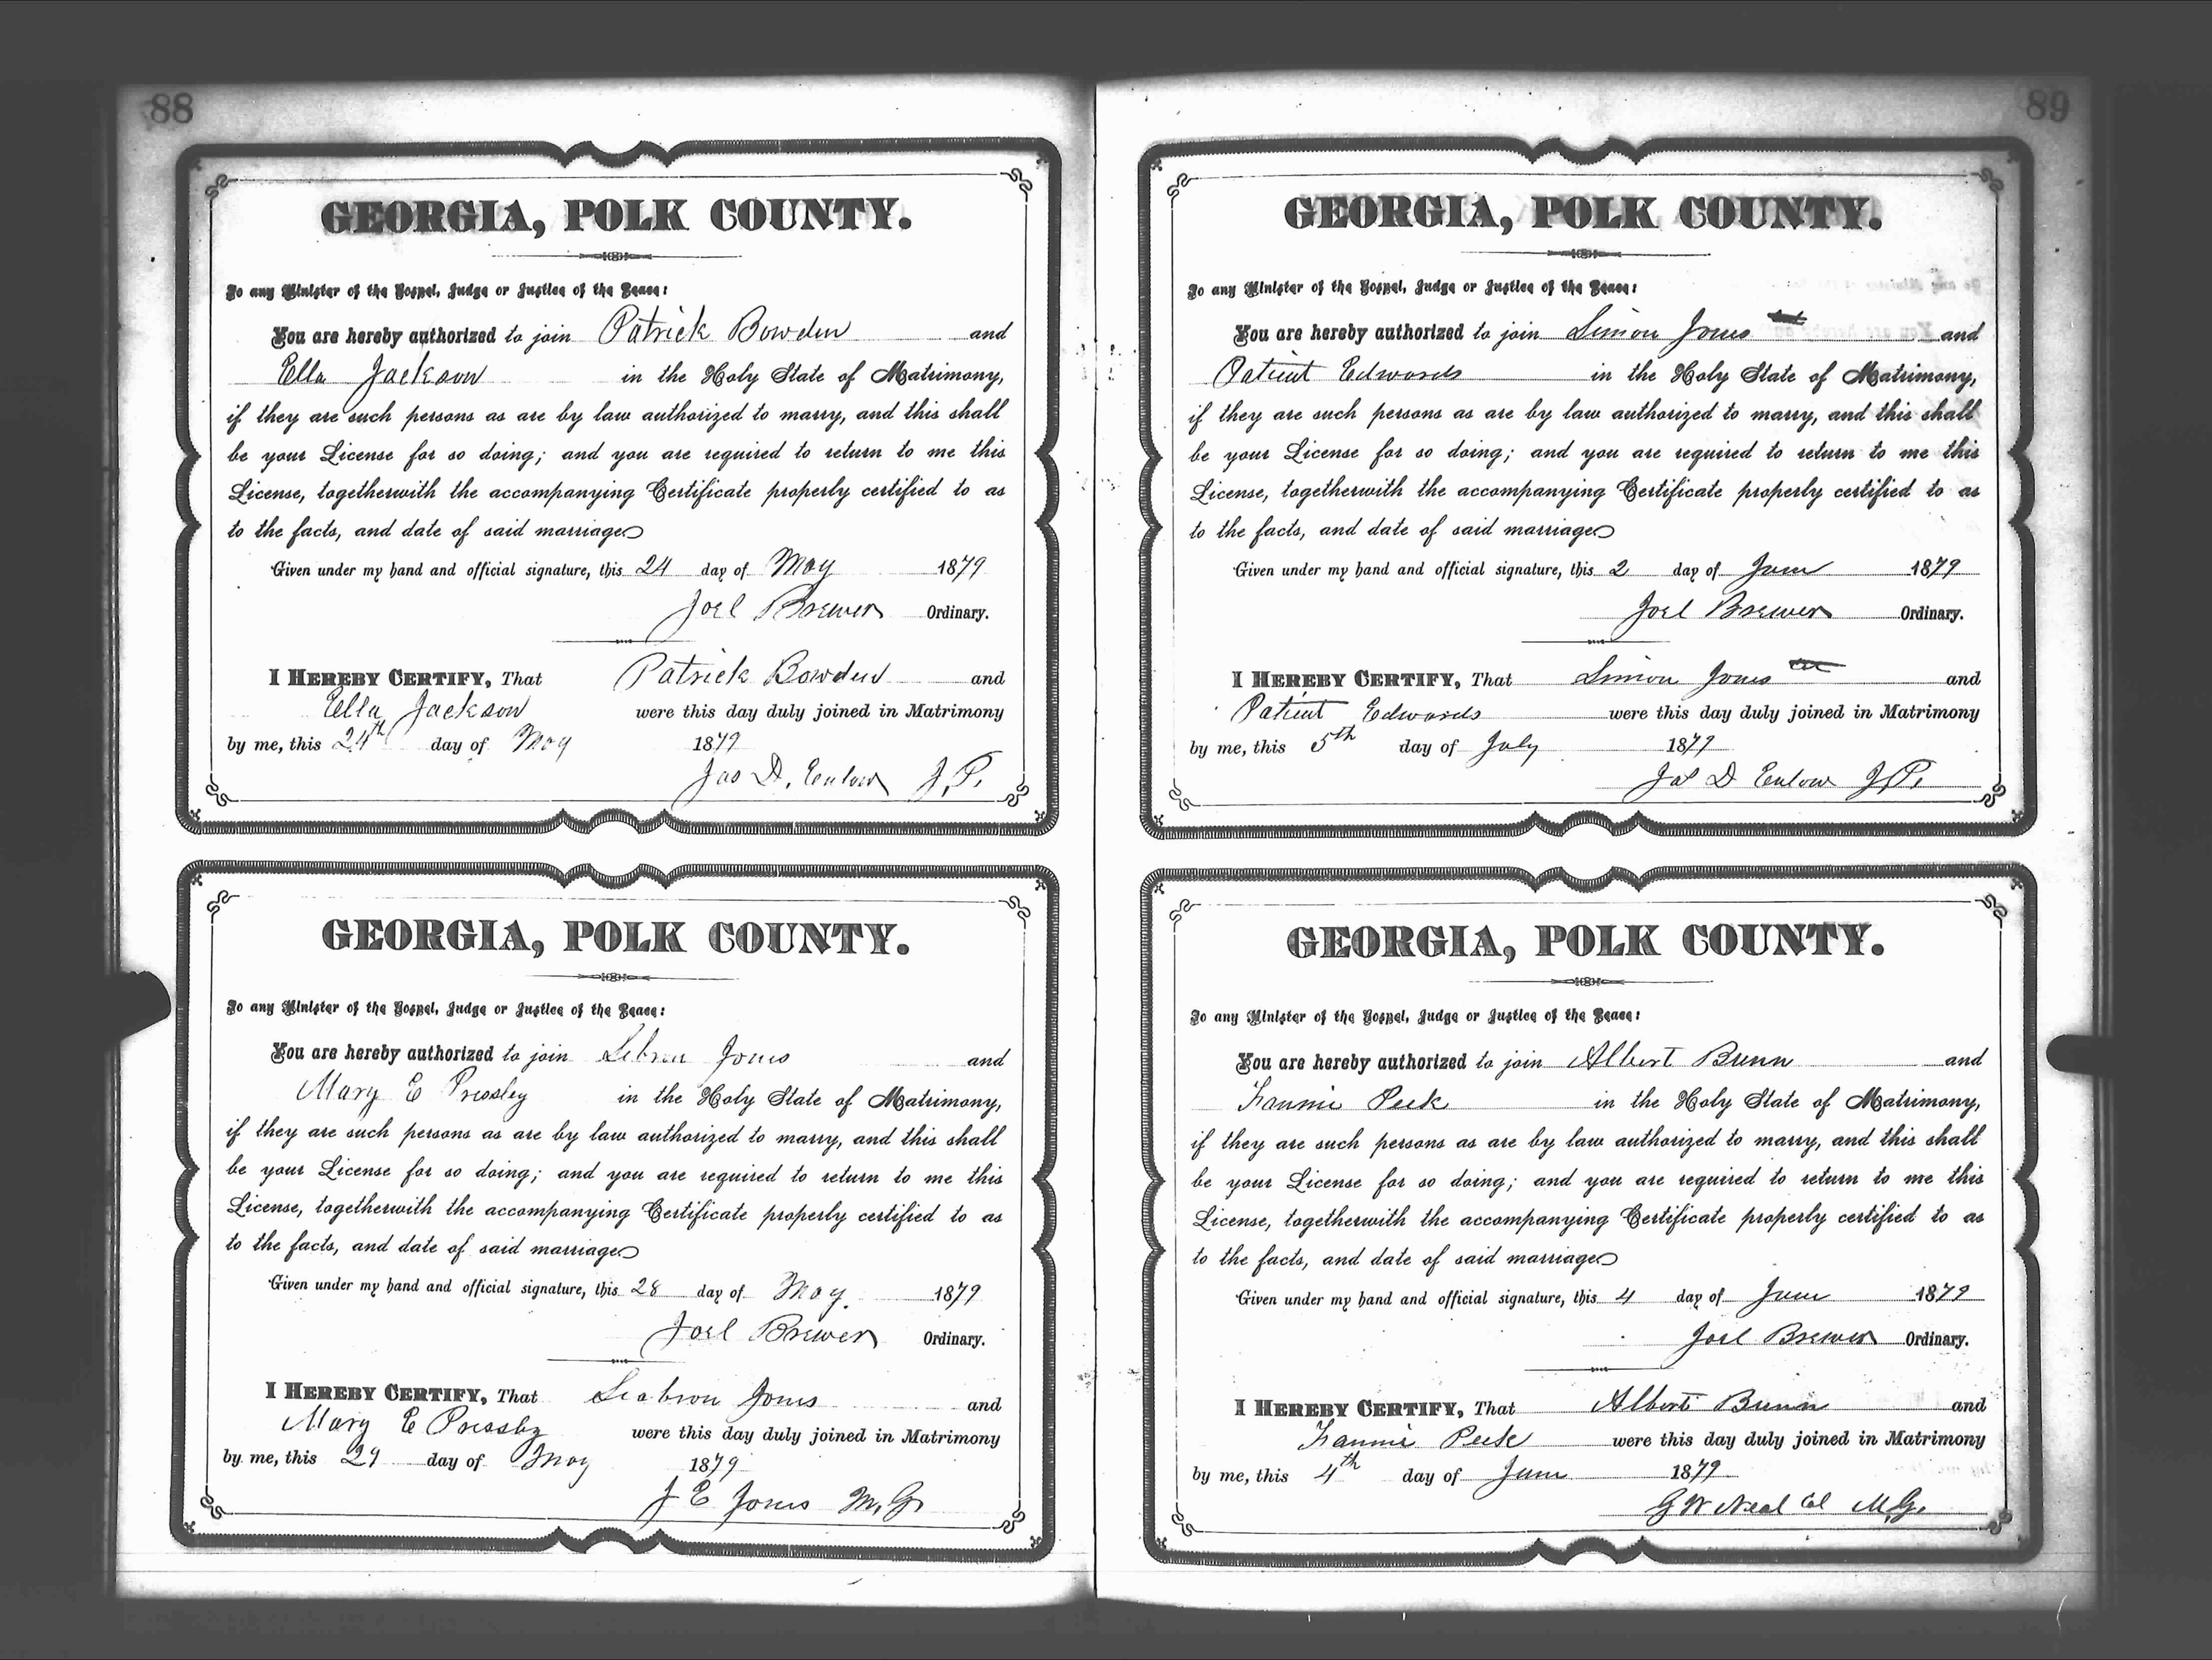 88
GEORGIA, POLK COUNTY.
To any Minister of the Gospel, Judge or Justice of the Peace:
You are hereby authorized to join Patrick Bowden and
Ella Jackson in the Holy State of Matrimony,
if they are such persons as are by law authorized to marry, and this shall
be your License for so doing; and you are required to return to me this
License, togetherwith the accompanying Certificate properly certified to as
to the facts, and date of said marriage
Given under my hand and official signature, this 24 day of May 1879
Joel Brewer Ordinary.
I HEREBY CERTIFY, That Patrick Bowden and
Ella Jackson were this day duly joined in Matrimony
by me, this 24th day of May 1879
Jas D. Enlow J.P.
GEORGIA, POLK COUNTY.
To any Minister of the Gospel, Judge or Justice of the Peace:
You are hereby authorized to join Jones and
Mary E Pressley in the Holy State of Matrimony,
if they are such persons as are by law authorized to marry, and this shall
be your License for so doing; and you are required to return to me this
License, togetherwith the accompanying Certificate properly certified to as
to the facts, and date of said marriage
Given under my hand and official signature, this 28 day of May. 1879
Joel Brewer Ordinary.
I HEREBY CERTIFY, That Seabron Jones and
Mary E Pressly were this day duly joined in Matrimony
by me, this 29 day of May 1879
J E Jones M.G.
89
GEORGIA, POLK COUNTY.
To any Minister of the Gospel, Judge or Justice of the Peace:
You are hereby authorized to join Simon Jones and
Patient Edwards in the Holy State of Matrimony,
if they are such persons as are by law authorized to marry, and this shall
be your License for so doing; and you are required to return to me this
License, togetherwith the accompanying Certificate properly certified to as
to the facts, and date of said marriage
Given under my hand and official signature, this 2 day of June 1879
Joel Brewer Ordinary.
I HEREBY CERTIFY, That Simon Jones and
Patient Edwards were this day duly joined in Matrimony
by me, this 5th day of July 1879
Jas D Enlow J.P.
GEORGIA, POLK COUNTY.
To any Minister of the Gospel, Judge or Justice of the Peace:
You are hereby authorized to join Albert Bunn and
Fannie Peek in the Holy State of Matrimony,
if they are such persons as are by law authorized to marry, and this shall
be your License for so doing; and you are required to return to me this
License, togetherwith the accompanying Certificate properly certified to as
to the facts, and date of said marriage
Given under my hand and official signature, this 4 day of June 1879
Joel Brewer Ordinary.
I HEREBY CERTIFY, That Albert Bunn and
Fannie Peek were this day duly joined in Matrimony
by me, this 4th day of June 1879
G W Neal Col M.G.